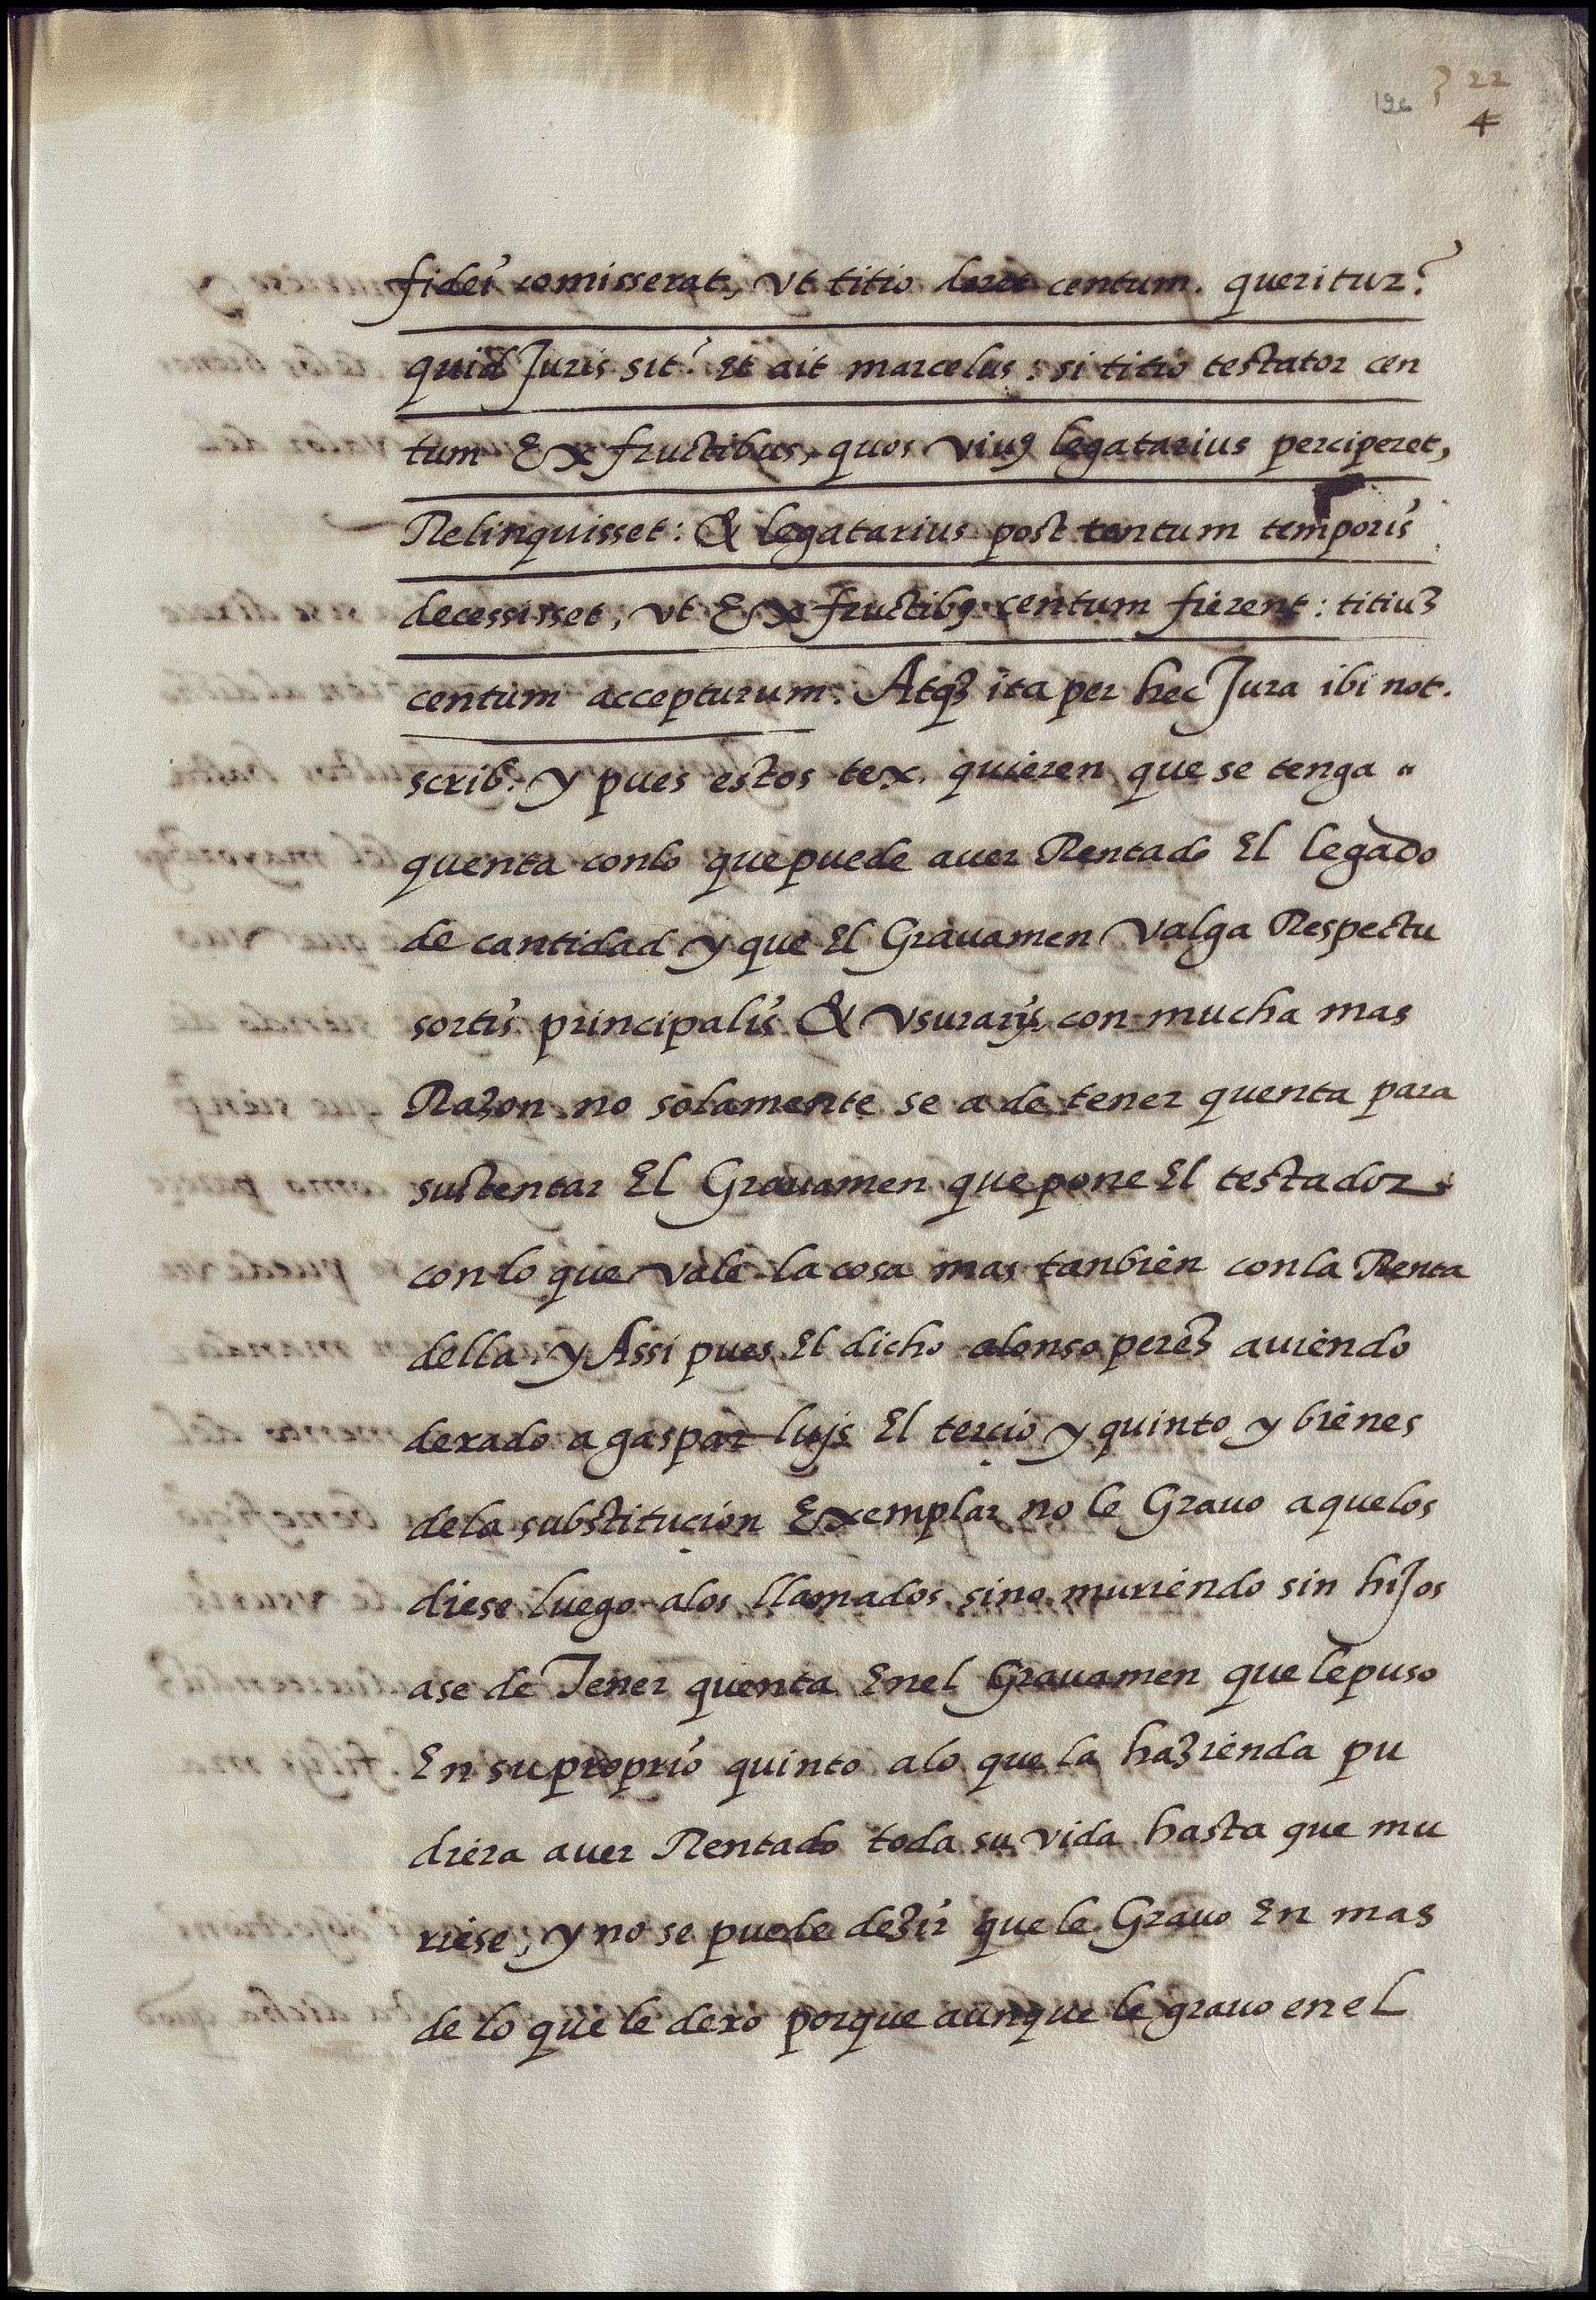 22
4
fidei comisserat, vt titio daret centum. queritur?
quid Juris sit? et ait marcelus: si titio testator cen
tum Ex fructibus, quos viuus legatarius perciperet,
Relinquisset: & legatarius post tantum temporis
decessisset, vt Ex fructibus centum fierent: titiuz
centum accepturum. Atqz ita per hec Jura ibi not.
scrib. y pues estos tex. quieren que se tenga
quenta conlo que puede auer Rentado El legado
de cantidad y que El Grauamen valga Respectu
sortis principalis & vsurarijs, con mucha mas
Razon no solamente se a de tener quenta para
sustentar El Grauamen que pone El testador
con lo que vale la cosa mas tanbien con la Renta
della. y Assi pues El dicho alonso perez auiendo
dexado a gaspar lujs El tercio y quinto y bienes
dela substitucion Exemplar no le Grauo aquelos
diese luego alos llamados sino muriendo sin hiJos
ase de Tener quenta Enel Grauamen que lepuso
En su proprio quinto alo que la hazienda pu
diera auer Rentado toda su vida hasta que mu
riese, y no se puede dezir que le Grauo En mas
de lo que le dexo porque aunque le grauo enel